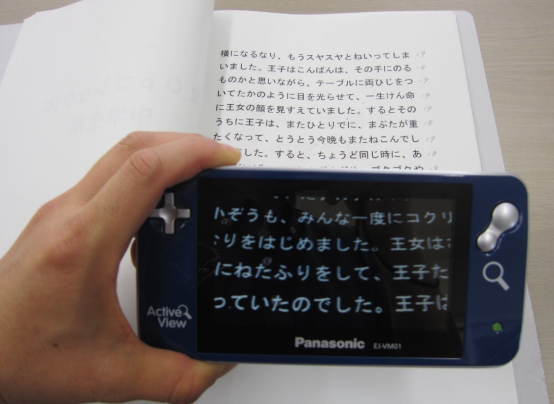 横になるなり、もうスヤスヤとねいってしま
いました。王子はこんばんは、その手にのる
ものかと思いながら、テーブルに両ひじをつ
いてたかのように目を光らせて、一生けん命
に王女の顔を見すえていました。するとその
うちに王子は、またひとりでに、まぶたが重
たくなって、とうとう今晩もまたねこんでし
ました。すると、ちょうど同じ時に、あ
ぞうも、みんな一度にコクリ
りをはじめました。王女は
にねたふりをして、王子た
っていたのでした。王子は
Active View
Panasonic EJ-VM01